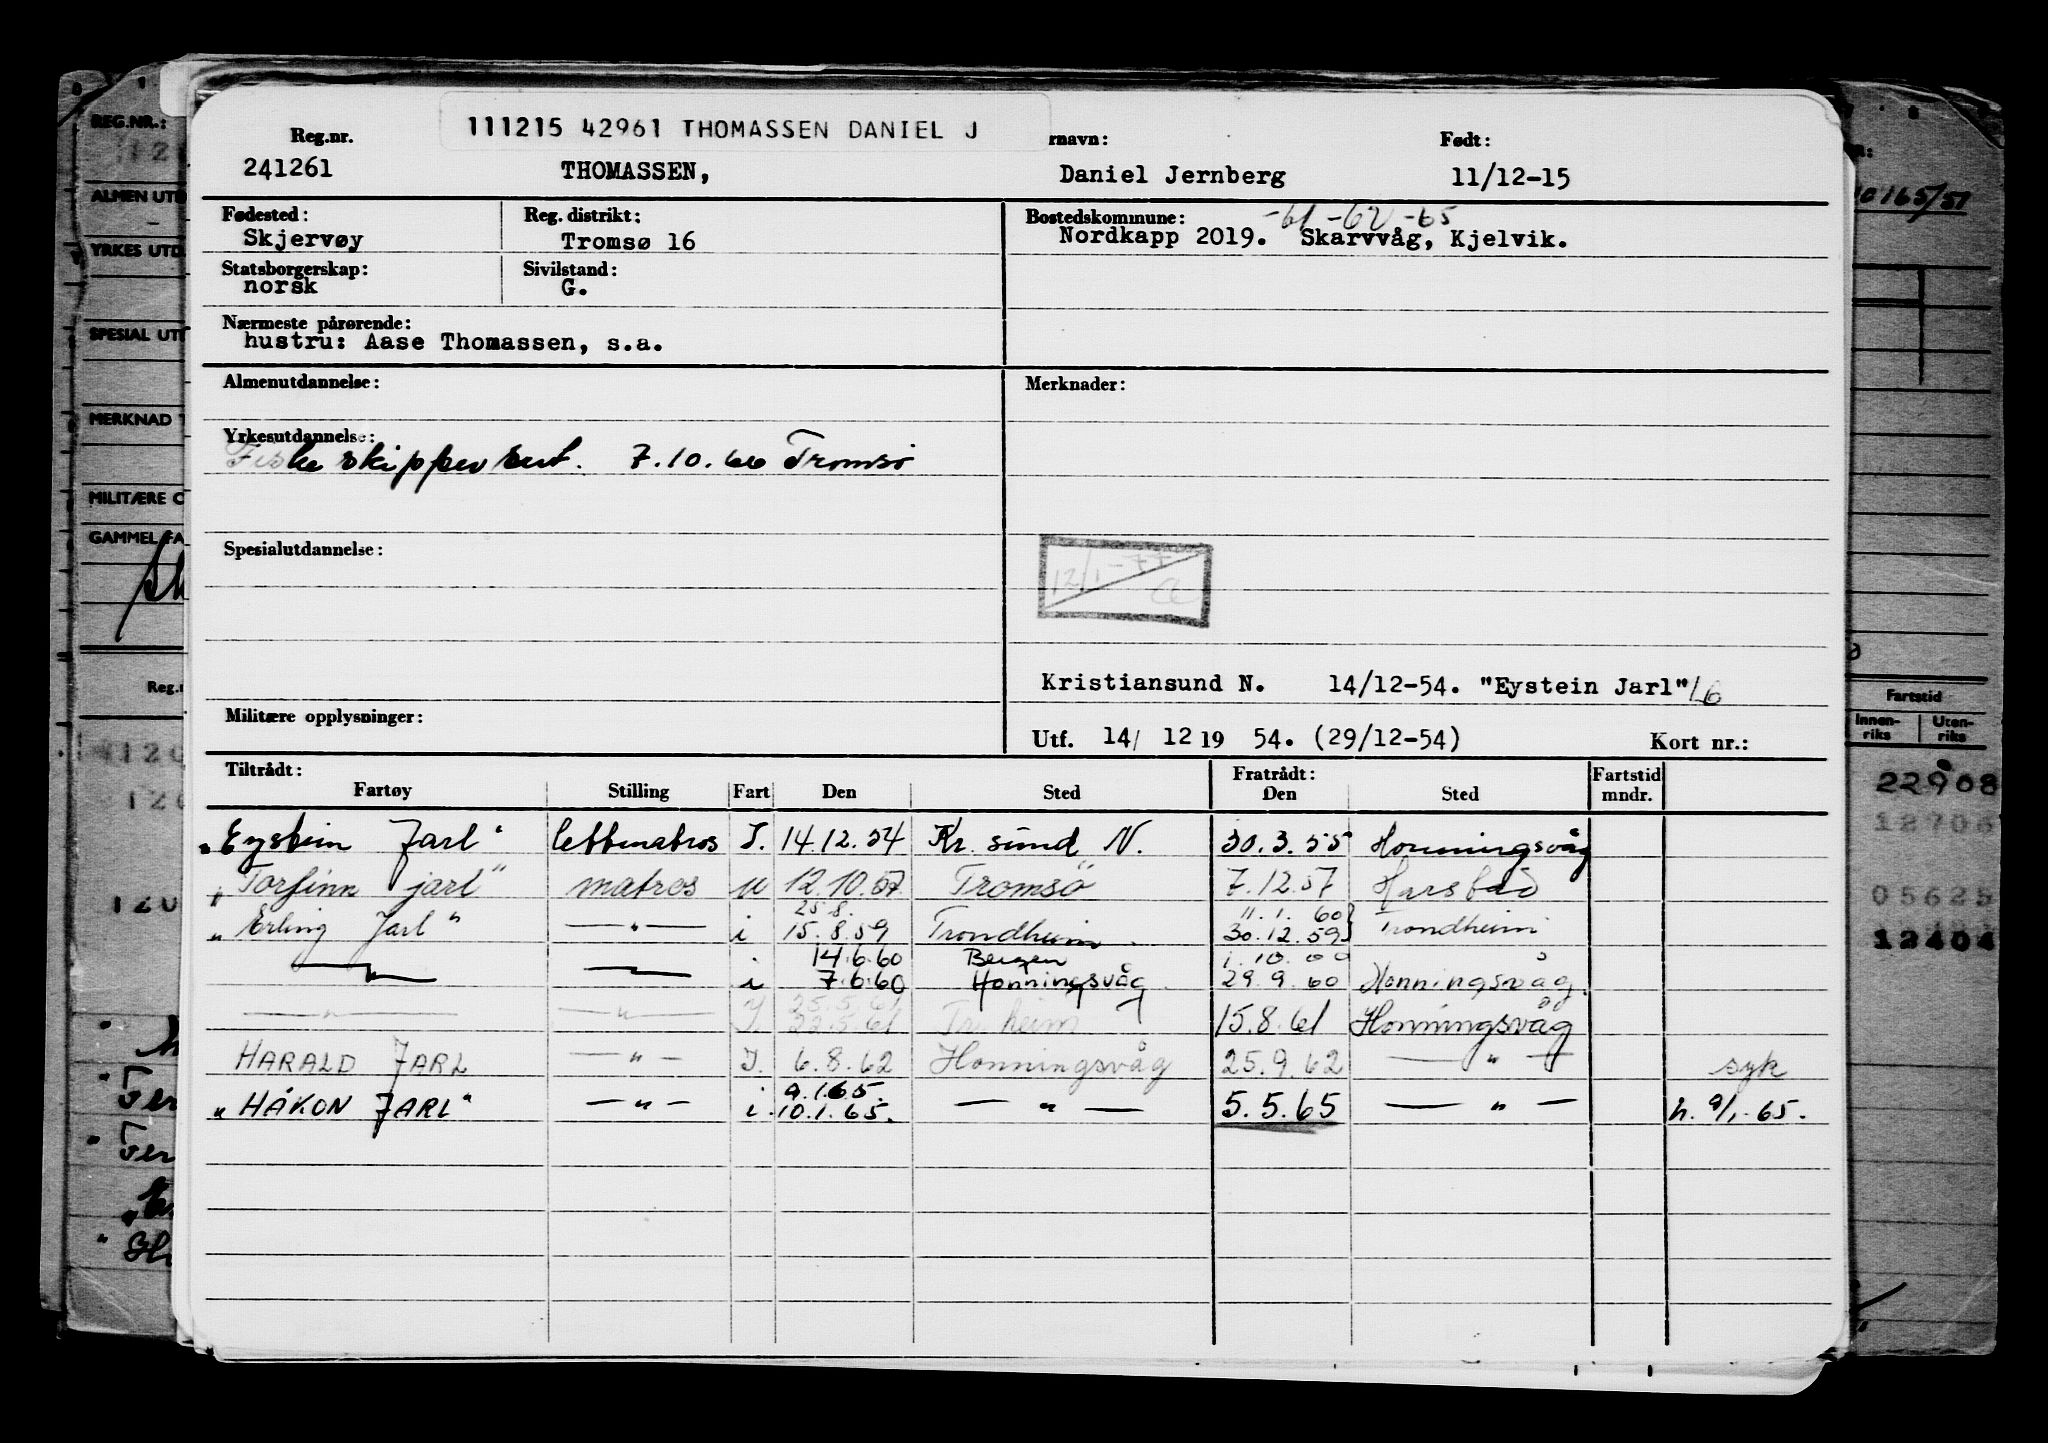 111215 42961 THOMASSEN DANIEL J
Reg.nr. rnavn: Født:
241261 THOMASSEN, Daniel Jernberg 11/12-15
Fødested: Reg. distrikt: Bostedskommune: -61 -62 -65
Skjervøy Tromsø 16 Nordkapp 2019. Skarvvåg, Kjelvik.
Statsborgerskap: Sivilstand:
norsk G.
Nærmeste pårørende:
hustru: Aase Thomassen, s.a.
Almenutdannelse: Merknader:
Yrkesutdannelse:
Fiskeskippersert. 7.10.66 Tromsø
Spesialutdannelse:
12/1-77
Kristiansund N. 14/12-54. "Eystein Jarl" 16
Militære opplysninger:
Utf. 14/ 12 19 54. (29/12-54) Kort nr.:
Tiltrådt: Fratrådt: Fartstid
Fartøy Stilling Fart Den Sted Den Sted mndr.
"Eystein Jarl" lettmatros I. 14.12.54 Kr. sund N. 30.3.55 Honningsvåg
"Torfinn jarl" matros u 12.10.57 Tromsø 7.12.57 Harstad
25.8. 11.1.60
"Erling Jarl" —"— i 15.8.59 Trondheim. 30.12.59 Trondheim
14.6.60 Bergen 1.10.60
—"— —"— i 7.6.60 Honningsvåg 29.9.60 Honningsvåg.
25.5.61
—"— —"— I. 22.5.61 Tr.heim 15.8.61 Honningsvåg
HARALD JARL —"— I. 6.8.62 Honningsvåg 25.9.62 —"— syk
9.1.65.
"HÅKON JARL" —"— i. 10.1.65. —"— 5.5.65 —"— h. 9/1-65.
REG.NR.:
ALMEN UTD
YRKES UTD.
SPESIAL UTD
MERKNAD T
MILITÆRE O
GAMMEL FA
Reg.n
10165/51
Fartstid
Innen-riks Uten-riks
22908
12706
05625
12404